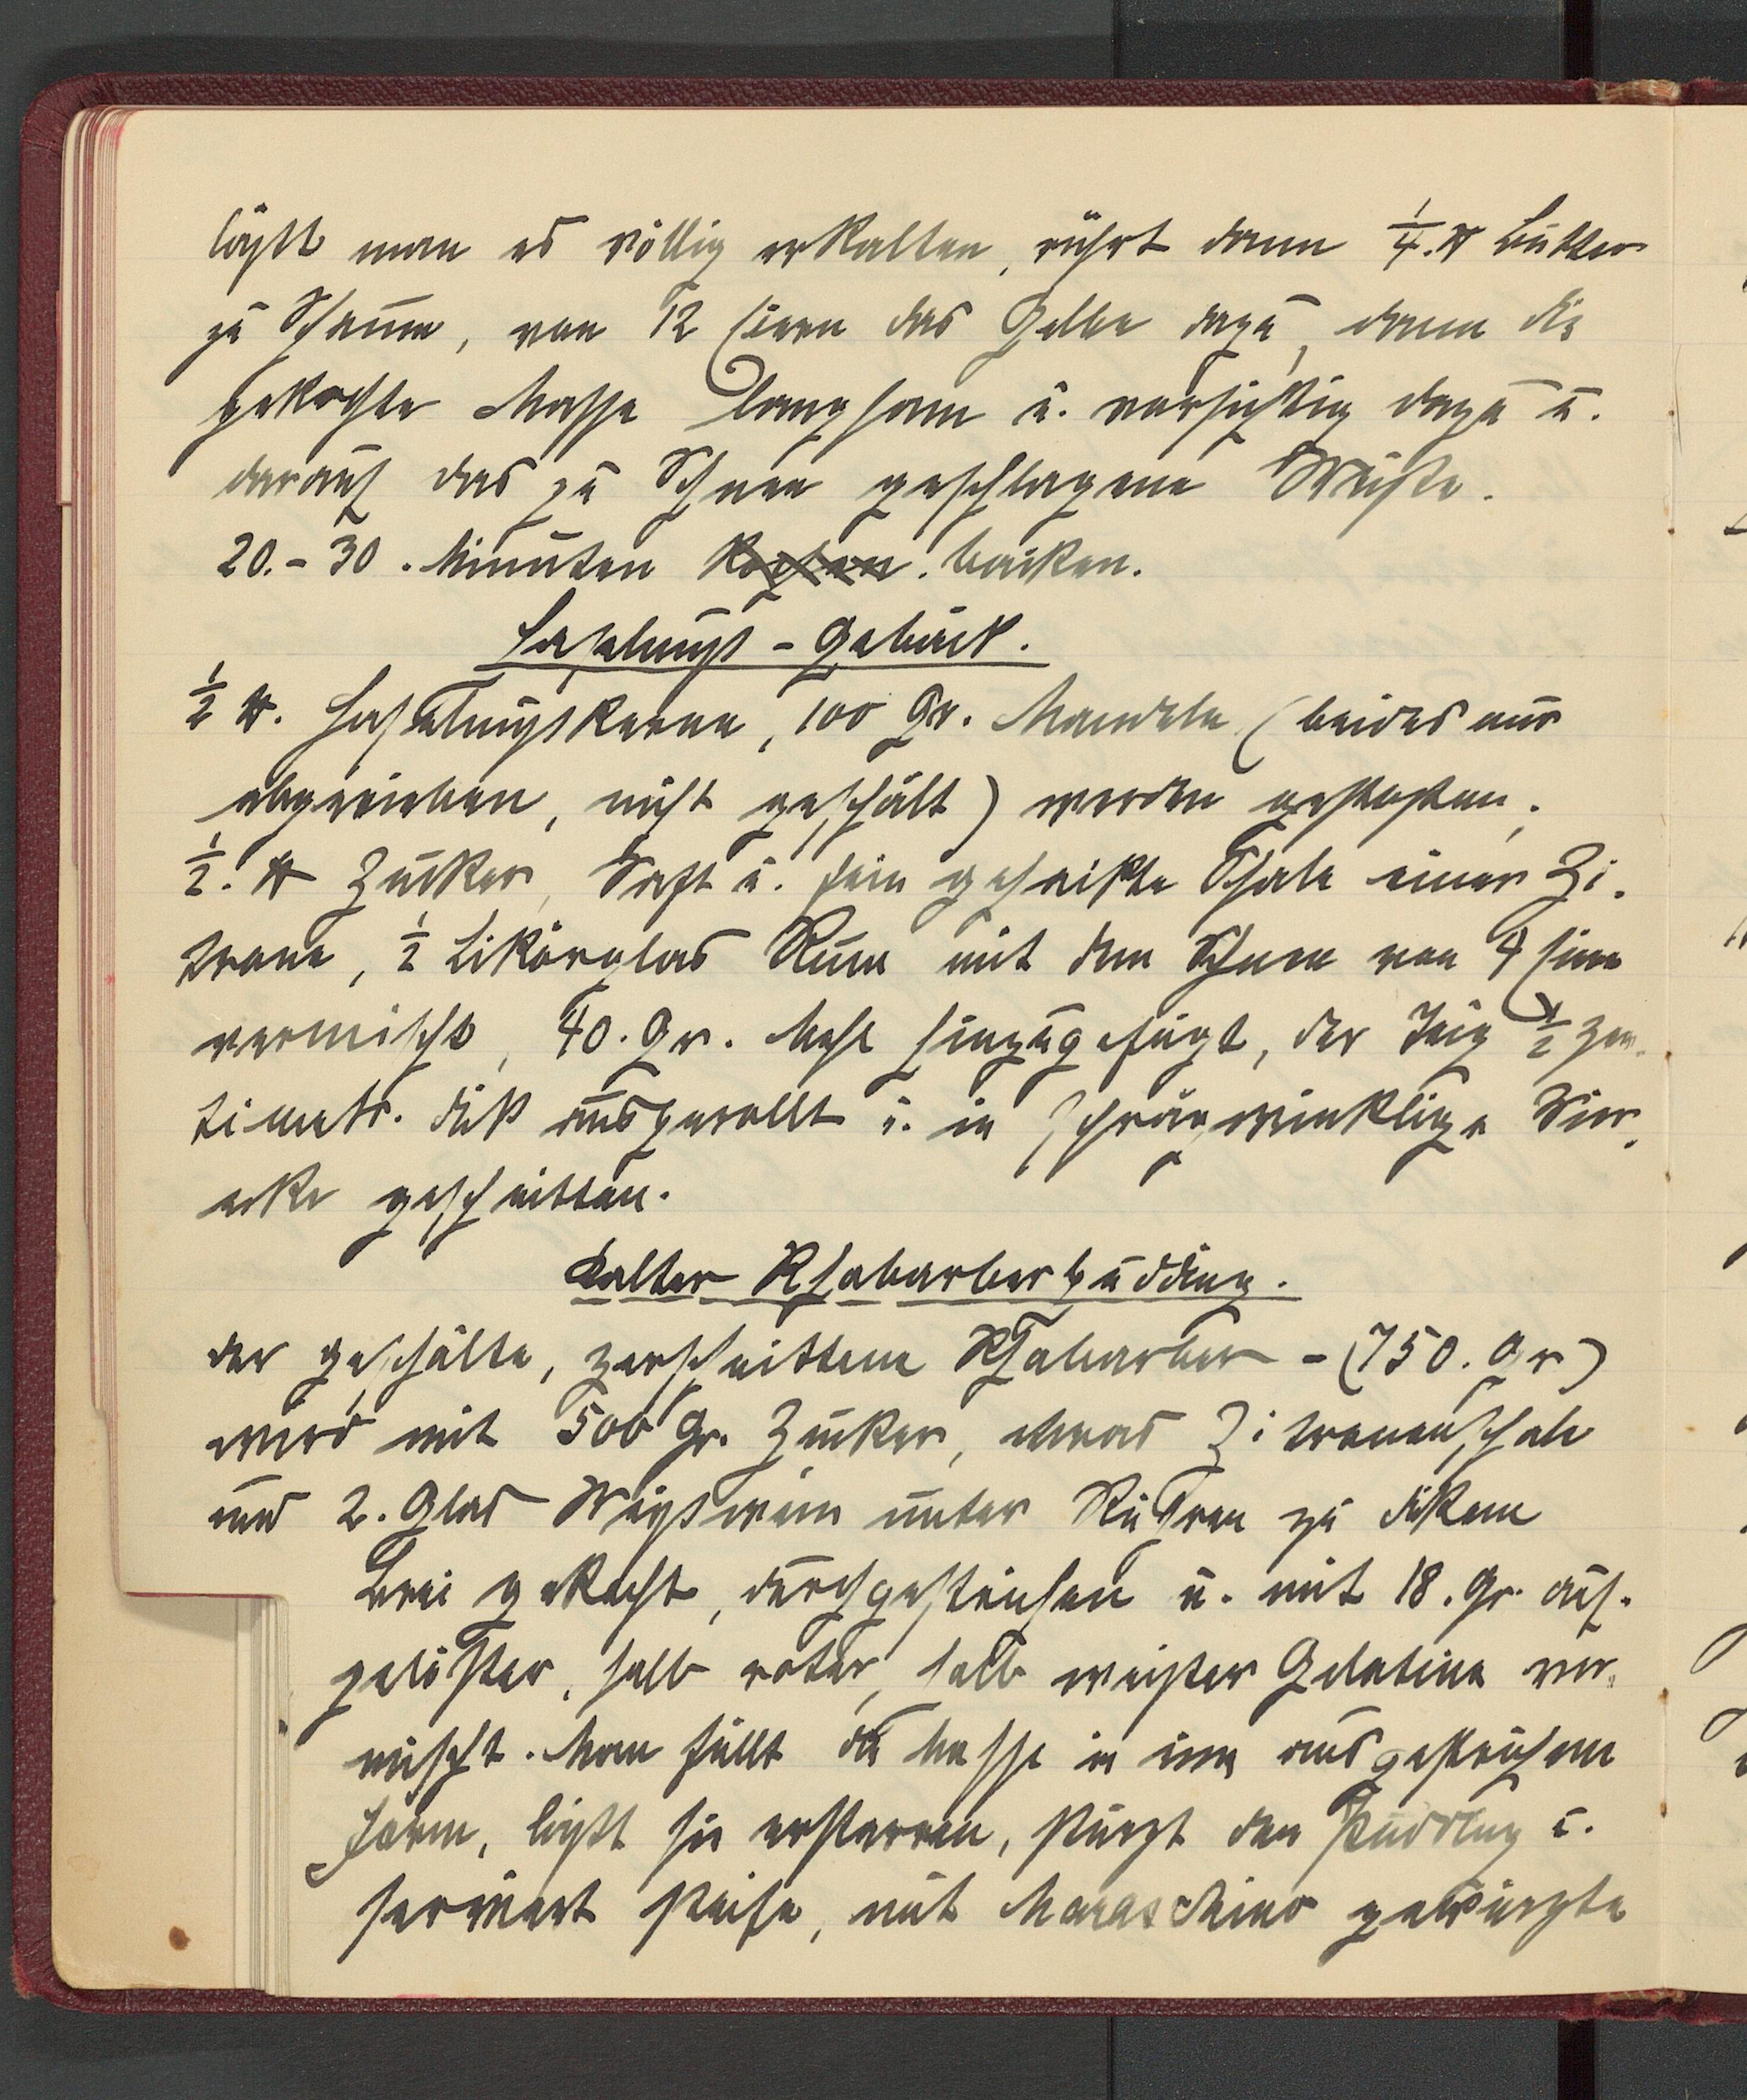 läßt man es völlig erkalten, rührt dann 1/4. ℔ Butter
zu Schaum, von 12 Eiern das Gelbe dazu, dann die
gekochte Masse langsam u. vorsichtig dazu u.
darauf das zu Schnee geschlagene Weiße.
20.-30. Minuten kochen. backen.
Haselnuß-Gebäck.
1/2 ℔. Haselnußkerne, 100 Gr. Mandeln (beides nur
abgerieben, nicht geschält) werden gestoßen,
1/2. ℔ Zucker, Saft u. fein gehackte Schale einer Zi-
trone, 1/2 Likörglas Rum mit dem Schnee von 4 Eiern
vermischt, 40. Gr. Mehl hinzugefügt, der Teig 1/2 Zen-
timetr. dick ausgerollt u. in schrägwinklige Vier-
ecke geschnitten.
Kalter Rhabarberpudding.
der geschälte, zerschnittene Rhabarber - (750. Gr)
wird mit 500 Gr. Zucker, etwas Zitronenschale
und 2. Glas Weißwein unter Rühren zu dickem
Brei gekocht, durchgestrichen u. mit 18. Gr. auf-
gelöster, halb roter, halb weißer Gelatine ver-
mischt. Man füllt die Masse in eine ausgestrichene
Form, läßt sie erstarren, stürzt den Pudding u.
serviert steife, mit Maraschino gewürzte